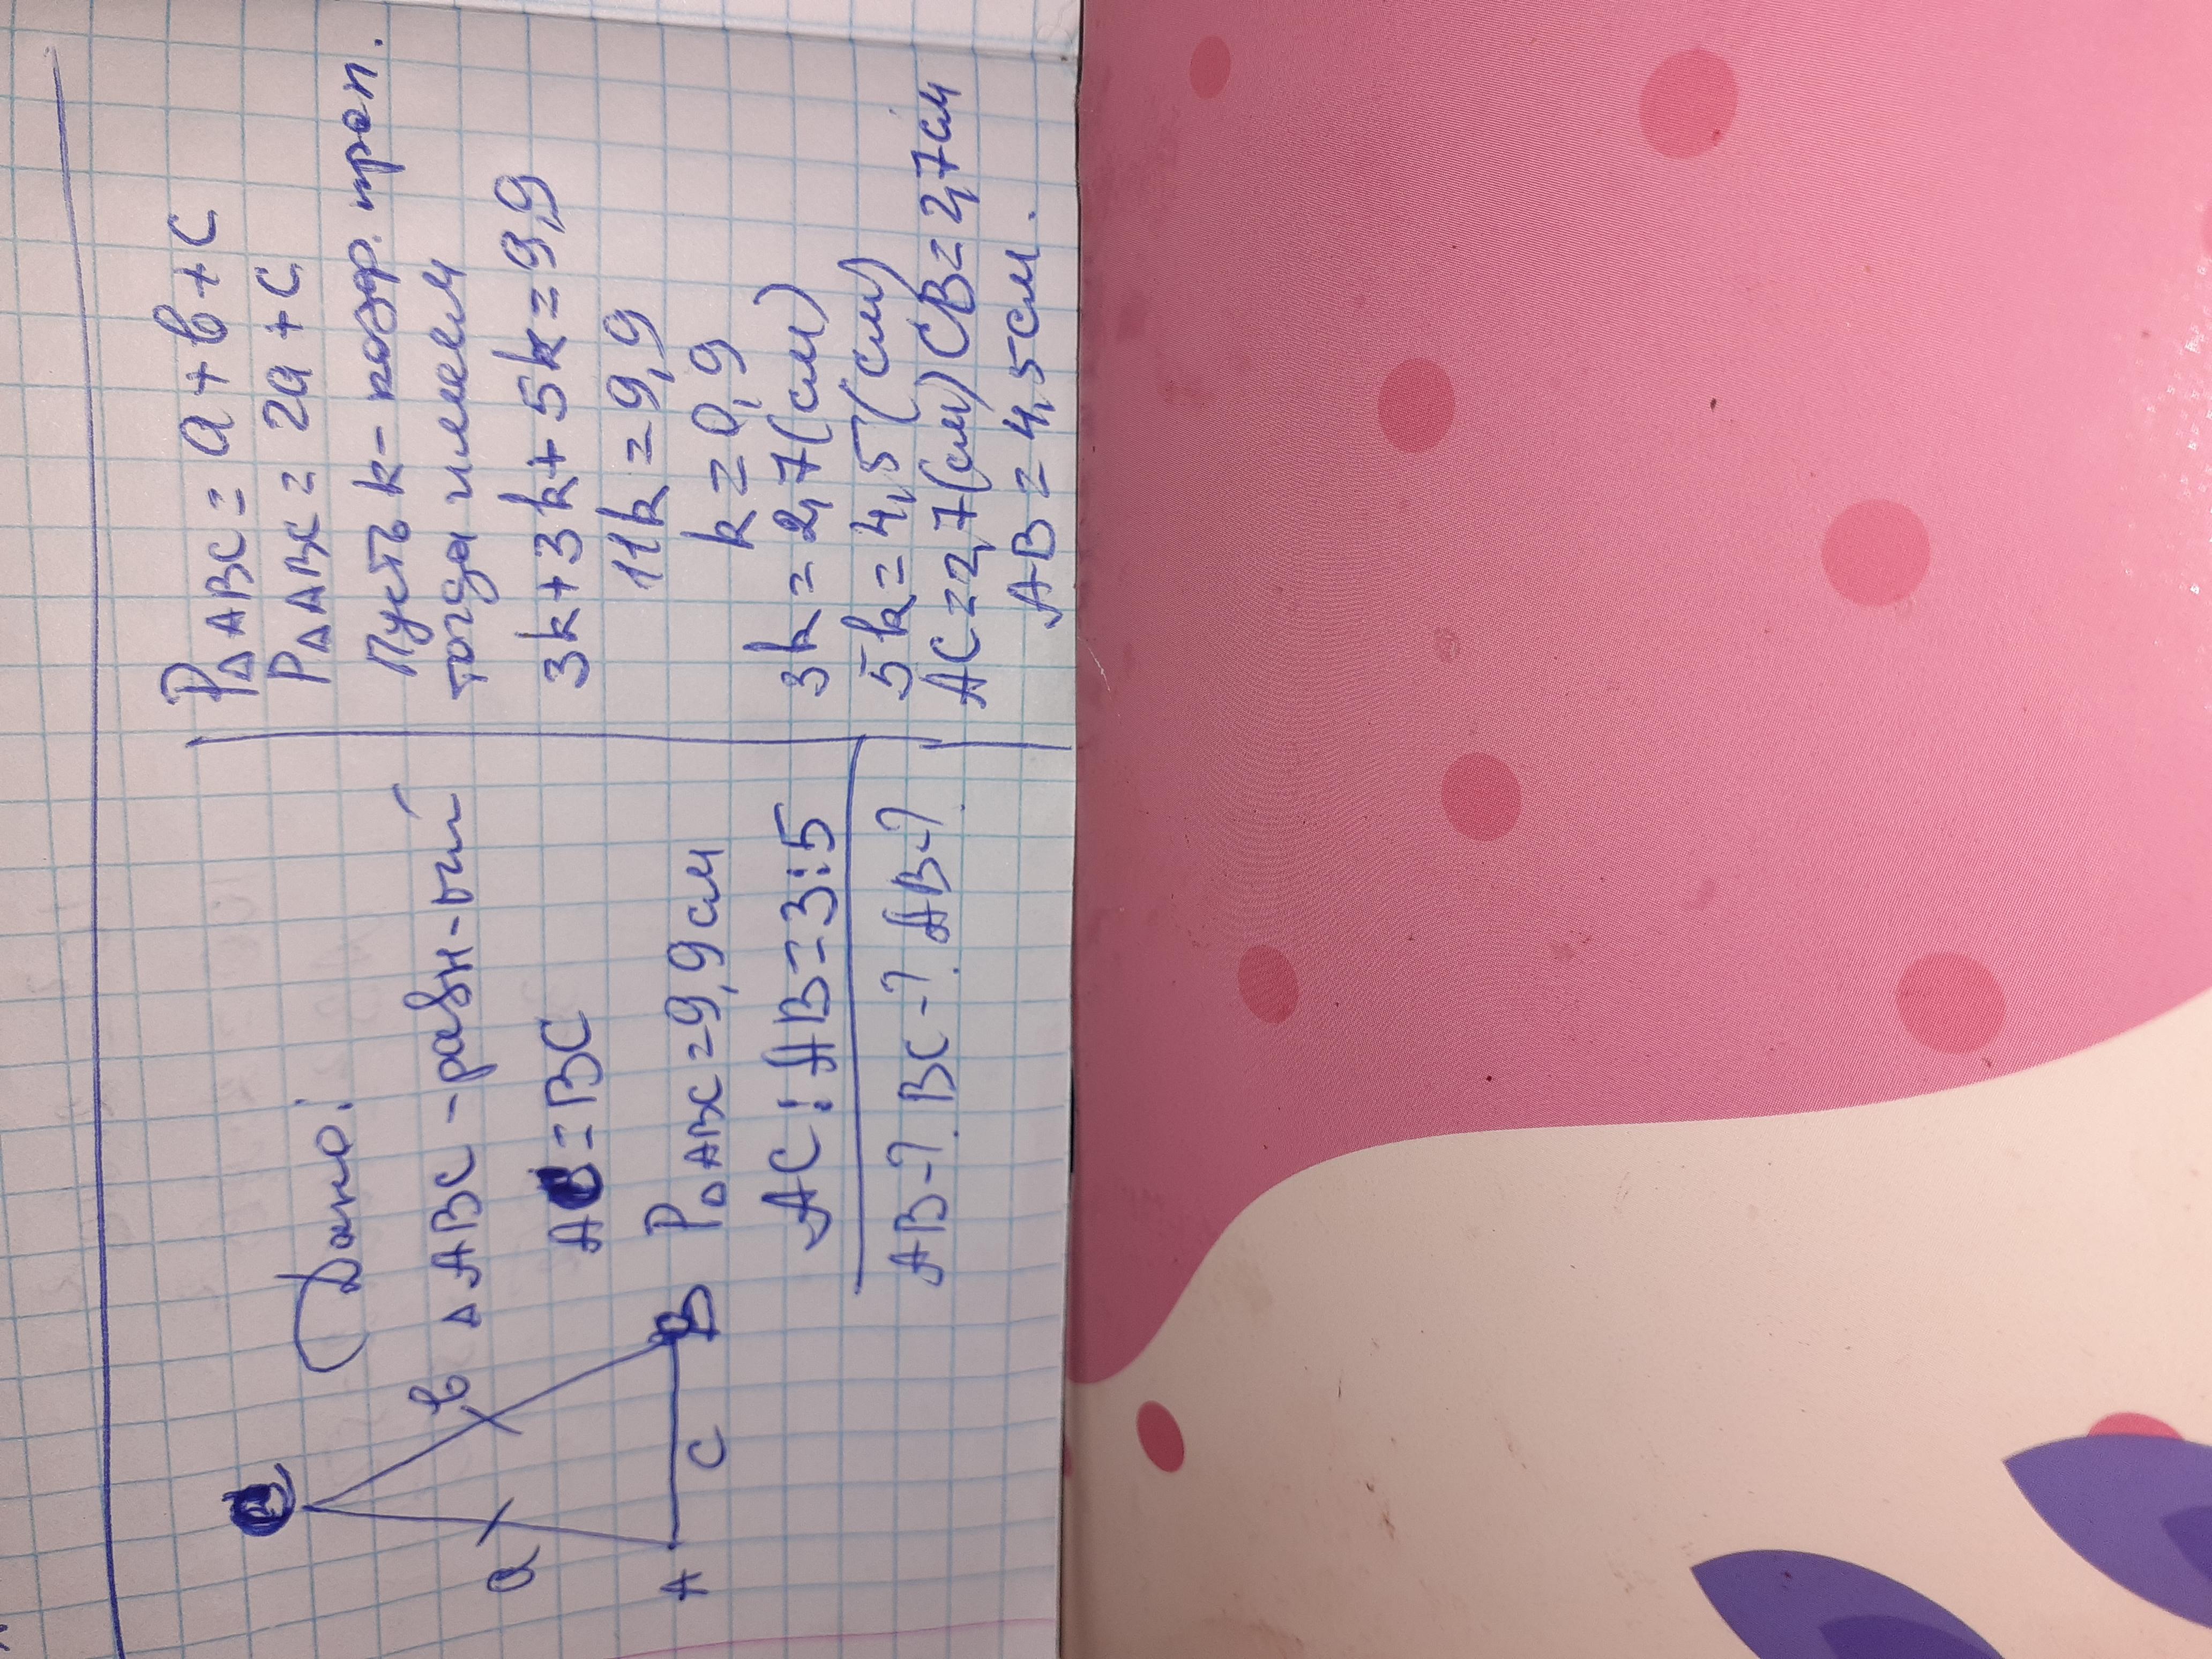 Дано:
C
a
в
A
B
c
△ABC - равн-ый
AC = BC
P△ABC = 9,9 см
AC : AB = 3:5
AB-?. BC-?. AB-?.
P△ABC = a + в + c
P△ABC = 2a + c
Пусть k - коэф. проп.
тогда имеем
3k + 3k + 5k = 9,9
11k = 9,9
k = 0,9
3k = 2,7 (см)
5k = 4,5 (см)
AC = 2,7 (см) CB = 2,7 см
AB = 4,5 см.